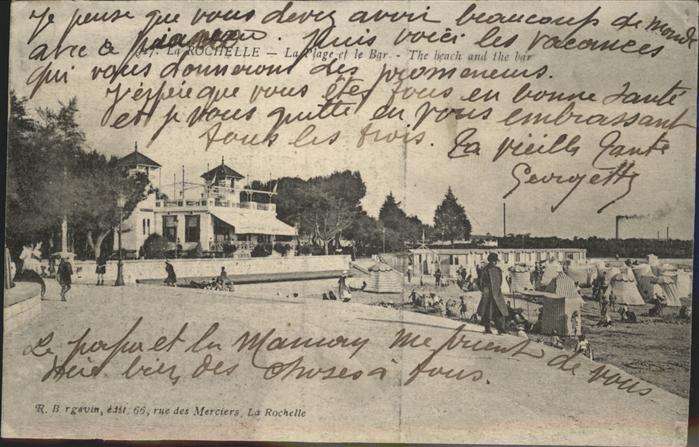 Je pense que vous devez avoir beaucoup de monde
avec ce . Puis voici les vacances
47. La ROCHELLE – La Plage et le Bar - The beach and the bar
qui vous donneront des promeneurs.
J'espère que vous êtes tous en bonne santé
et je vous quitte en vous embrassant
tous les trois. Ta vieille tante
Georgette
Le papa et la Maman me prient de vous
dire bien des choses à tous.
R. Bergevin, édit. 66, rue des Merciers, La Rochelle